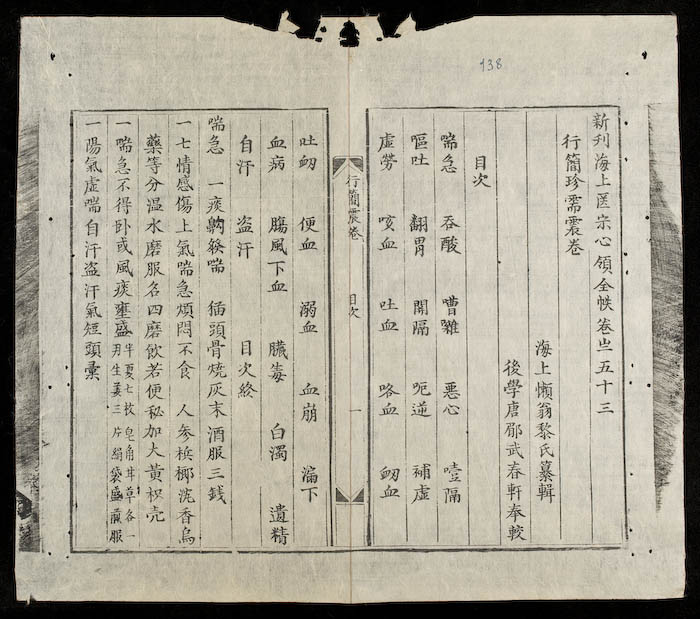 138
新刋海上医宗心領全帙卷之五十三
行簡珍需震卷
海上懶翁黎氏纂輯
後學唐郿武春軒奉較
目次
喘急 吞酸 嘈雜 惡心 噎隔
嘔吐 翻胃 開隔 呃逆 補虛
虛勞 咳血 吐血 咯血 衂血
行簡震卷 目次 一
吐衂 便血 溺血 血崩 漏下
血病 膓風下血 臟毒 白濁 遺精
自汗 盗汗 目次終
喘急 一痰齁𤼵喘 猫頭骨燒灰末酒服三錢
一七情感傷上氣喘急煩悶不食 人参梹榔沉香烏
藥等分温水磨服名四磨飲若便秘加大黄枳壳
一喘急不得卧或風痰壅盛半夏七枚皂角炙草各一
刃生姜三片絹袋盛煎服
一陽氣虛喘自汗盗汗氣短頭暈